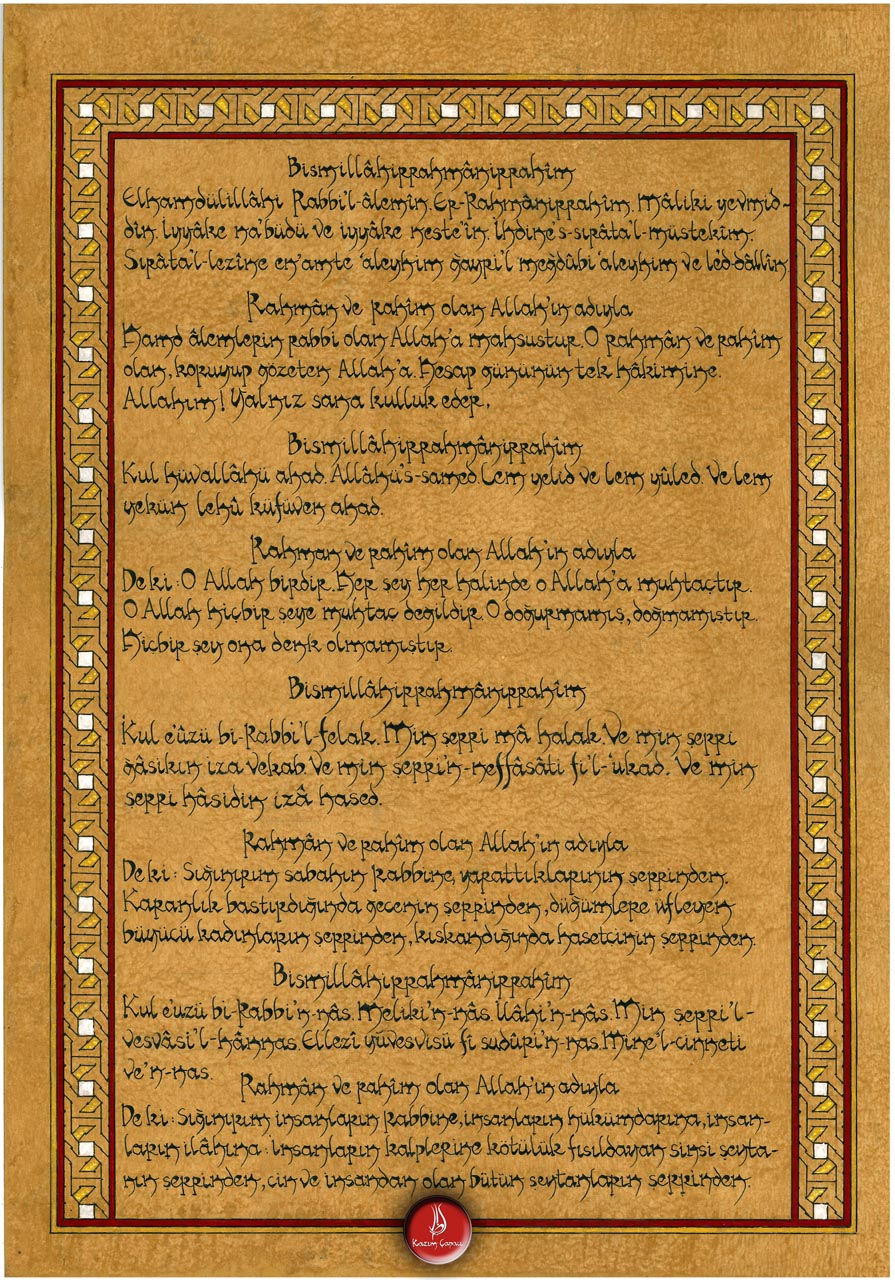 Bismillâhirrahmânirrahîm
Elhamdülillâhi Rabbi'l-âlemin. Er-Rahmânirrahîm. Mâliki yevmid-
dîn. İyyâke na'büdü ve iyyâke neste'in. İhdine's-sırâta'l-müstekîm.
Sırâta'l-lezîne en'amte 'aleyhim ğayri'l meğdûbi 'aleyhim ve led-dâllîn.
Rahmân ve rahîm olan Allah'ın adıyla
Hamd âlemlerin rabbi olan Allah'a mahsustur. O rahmân ve rahîm
olan, koruyup gözeten Allah'a. Hesap gününün tek hâkimine.
Allahım! Yalnız sana kulluk eder,
Bismillâhirrahmânirrahîm
Kul hüvallâhü ahad. Allâhü's-samed. Lem yelid ve lem yûled. Ve lem
yekün lehû küfüven ahad.
Rahman ve rahîm olan Allah'ın adıyla
De ki: O Allah birdir. Her şey her halinde o Allah'a muhtaçtır.
O Allah hiçbir şeye muhtaç degildir. O doğurmamıs, doğmamıstır.
Hiçbir şey ona denk olmamıstır.
Bismillâhirrahmânirrahîm
Kul e'ûzü bi-Rabbi'l-felak. Min şerri mâ halak. Ve min şerri
ğâsikın iza vekab. Ve min şerri'n-neffâsâti fi'l-'ukad. Ve min
şerri hâsidin izâ hased.
Rahmân ve rahîm olan Allah'ın adıyla
De ki: Sığınırım sabahın Rabbine, yarattıklarının şerrinden.
Karanlık bastırdığında gecenin şerrinden, düğümlere üfleyen
büyücü kadınların şerrinden, kıskandığında hasetçinin şerrinden.
Bismillâhirrahmânirrahîm
Kul e'uzü bi-Rabbi'n-nâs. Meliki'n-nâs. İlâhi'n-nâs. Min şerri'l-
vesvâsi'l-hânnas. Ellezî yüvesvisü fi sudûri'n-nas. Mine'l-cinneti
ve'n-nas.
Rahmân ve rahîm olan Allah'ın adıyla
De ki: Sığınırım insanların Rabbine, insanların hükümdarına, insan-
ların ilâhına: İnsanların kalplerine kötülük fısıldayan sinsi şeyta-
nın şerrinden, cin ve insandan olan bütün seytanların şerrinden.
Kazım